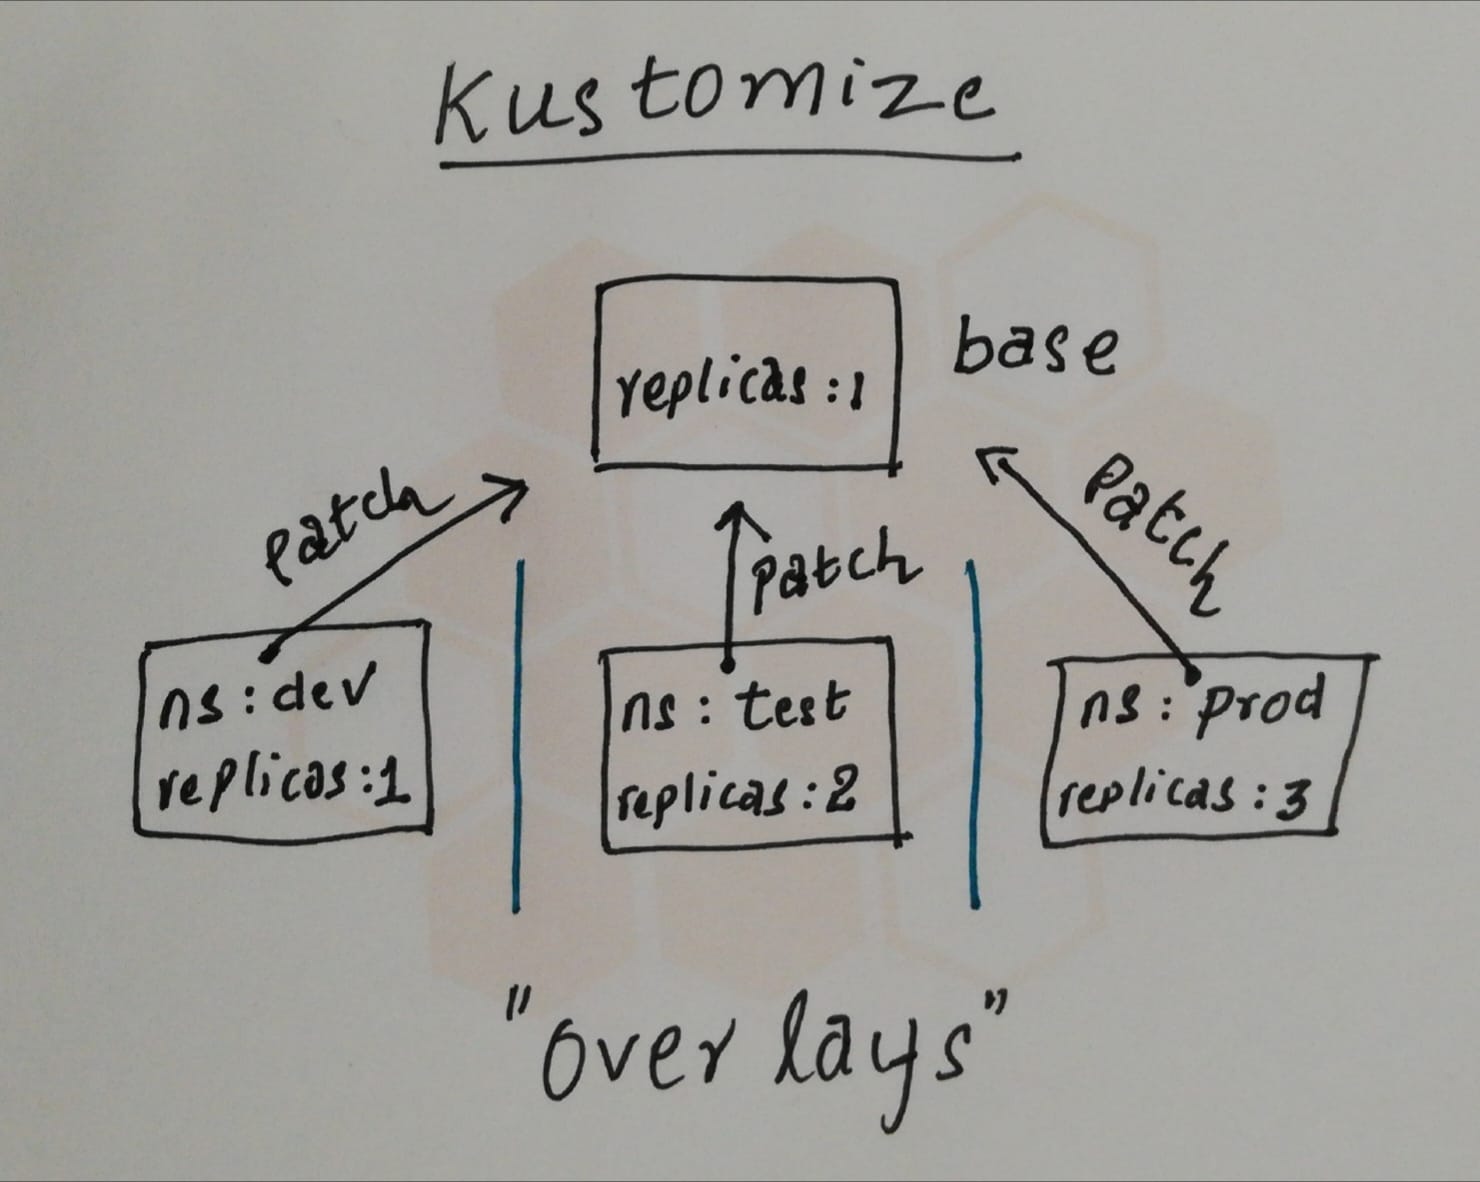 Kustomize
replicas:1
base
patch
patch
patch
ns:dev
replicas:1
ns: test
replicas:2
ns: prod
replicas:3
"over lays"